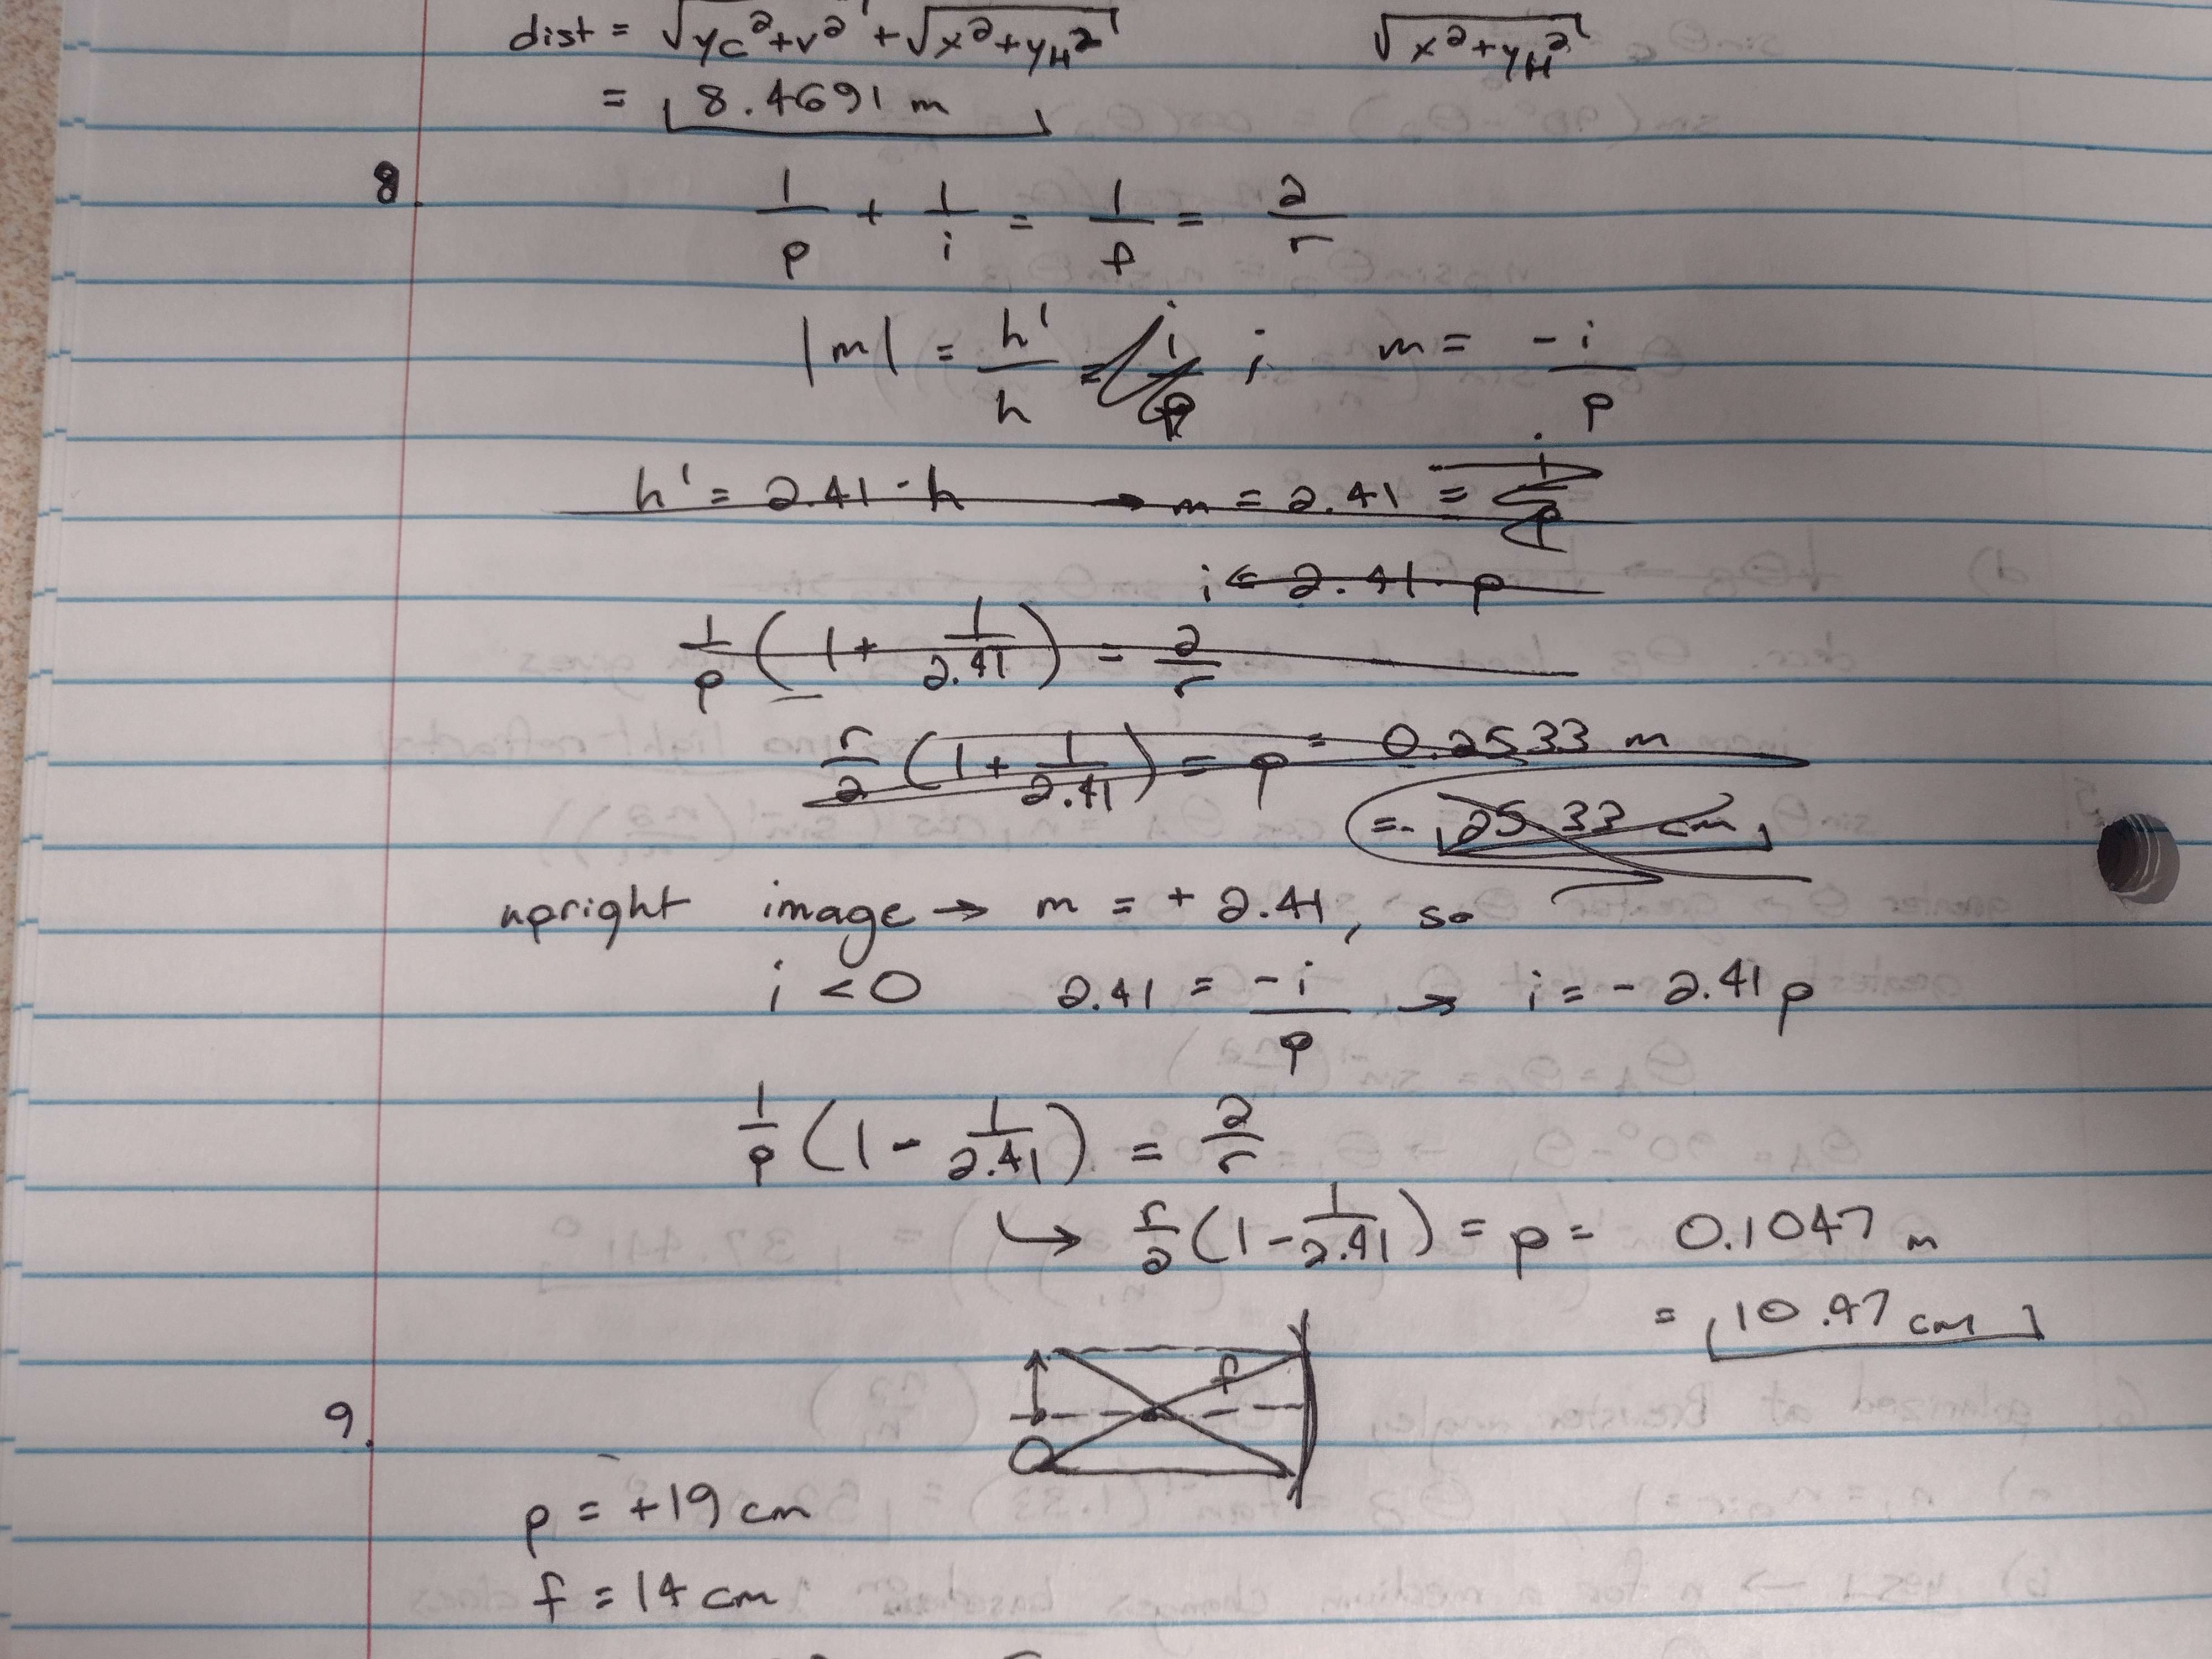 dist = √(yc²+v²) + √(x²+yH²) √(x²+yH²)
= 8.4691 m
8. 1/p + 1/i = 1/f = 2/r
|m| = h'/h = i/p ; m = -i/p
h' = 2.41 · h → m = 2.41 = i/p
i = 2.41 · p
1/p (1 + 1/2.41) = 2/r
r/2 (1 + 1/2.41) = p = 0.2533 m
= 25.33 cm
upright image → m = + 2.41, so
i < 0 2.41 = -i/p → i = - 2.41 p
1/p (1 - 1/2.41) = 2/r
↳ r/2 (1 - 1/2.41) = p = 0.1047 m
= 10.47 cm
f
9.
p = +19 cm
f = 14 cm